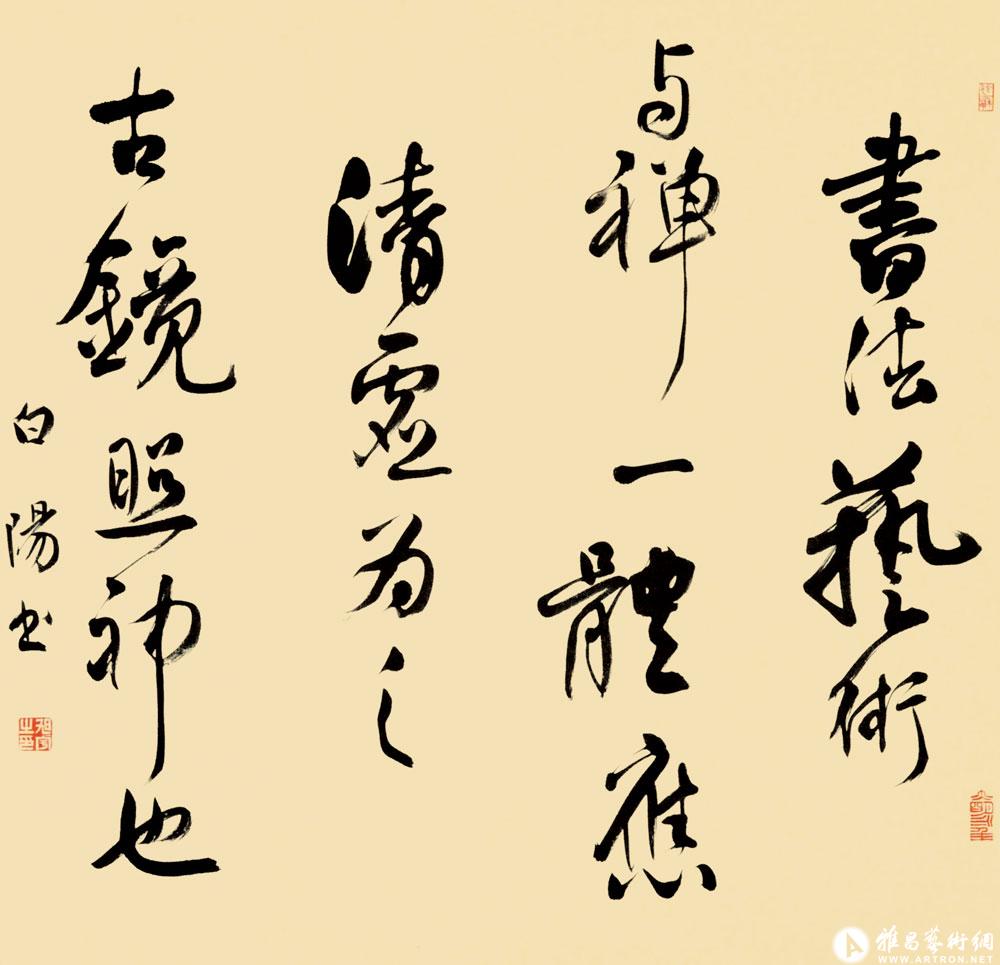 書法藝術
与禅一體應
清虛为之
古鏡照神也
白陽书
雅昌藝術網
WWW.ARTRON.NET